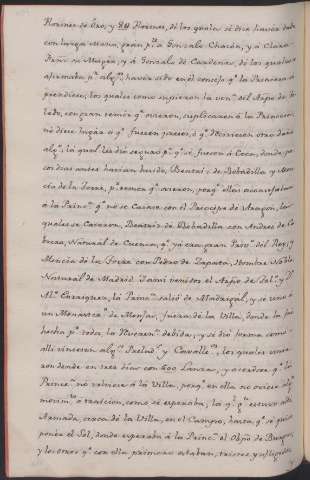 Florines de Oro, y 2U Florines, de los quales se dice haver dado
con larga Mano, gran p.te a Gonzalo Chacón, y á Clara
y á Gonzalo de Cardenas, de los quales se
afirmaba p.r alg.s haver sido en el consejo q.e la Princesa
prendiese, los quales como supieron la ven.da del Arzpo de To-
ledo, con gran temor q.e ovieron, suplicaron á la Princesa
no diese lugar á q.e fuesen presos, ó q.e Recivieren otro daño
alg.o, la qual les dió seguro p.a q.e se fuesen á Coca, donde po-
cos dias antes havian huido, Beatriz de Bobadilla y Men-
cia de la Torre, p.r temor q.e ovieron, porq.e ellas aconsejaban
á la Princ.a q.e no se Casase con el Principe de Aragon, las
quales se Casaron, Beatriz de Bobadilla con Andres de Ca-
brera, Natural de Cuenca, q.e ya era gran Priv.do del Rey, y
Mencia de la Torre con Pedro de Zapata, Hombre Noble
Natural de Madrid. Y ansi venidos, el Arzpo de
la Princ.a salió de Madrigal, y se vino á
un Monast.o de Monjas, fuera de la Villa, donde la fue
hecha p.r todos, la Reveren.a debida, y se dió forma como
alli viniesen alg.s Prelad.s y Cavall.s, los quales vinie-
ron donde en tres dias con 600 Lanzas, y acordose q.e la
Princ.a no volviese á la Villa, porq.e en ella no oviese alg.n
movim.to ó traicion, como se esperaba, la q.l
Armada, cerca de la Villa, en el Campo, hasta q.e se quiso
poner el Sol, donde esperaba á la Princ.a el Obpo de Burgos,
y los otros q.e con ella primero estaban, tristes, y afligidos